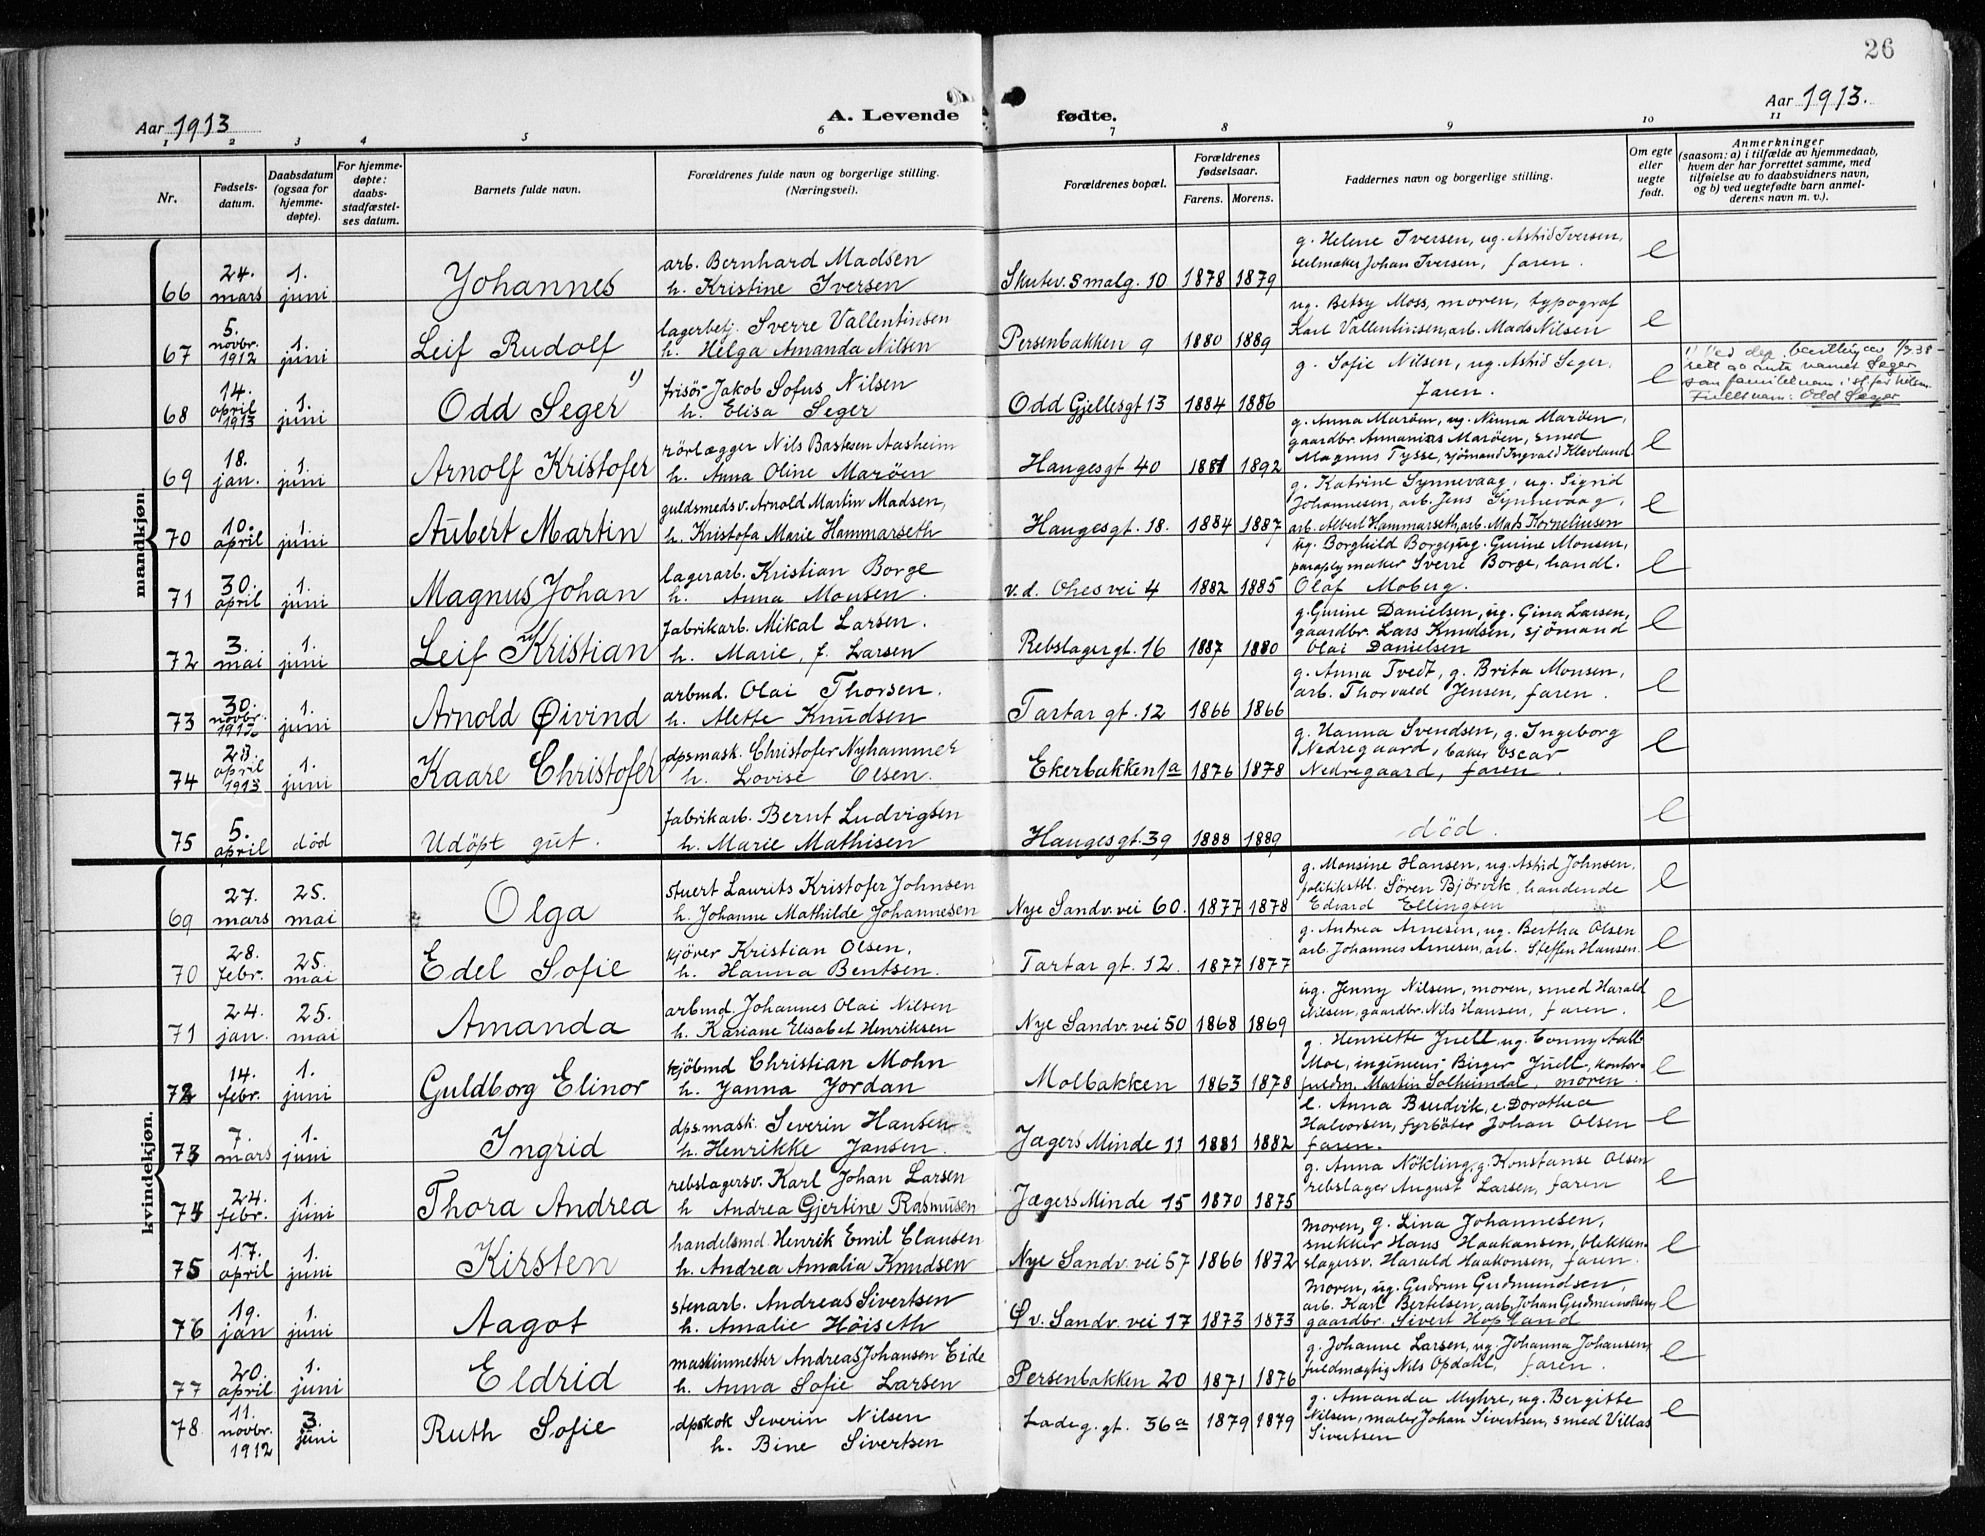 26
Aar 1913
A. Levende fødte.
Aar 1913.
1 2 3 4 5 6 7 8 9 10 11
Nr.
Fødsels-
datum.
Daabsdatum
(ogsaa for
hjemme-
døpte).
For hjemme-
døpte:
daabs-
stadfæstel-
ses datum.
Barnets fulde navn.
Forældrenes fulde navn og borgerlige stilling.
(Næringsvei).
Forældrenes bopæl.
Forældrenes
fødselsaar.
Farens. Morens.
Faddernes navn og borgerlige stilling.
Om egte
eller
uegte
født.
Anmerkninger
(saasom: a) i tilfælde av hjemmedaab,
hvem der har forrettet samme, med
tilføielse av to daabsvidners navn,
og b) ved uegtefødte barn anmel-
derens navn m. v.).
mandkjøn
66 24. mars 1. juni Johannes
arb. Bernhard Madsen
h. Kristine Iversen
Skutev. Smalg. 10 1878 1879
g. Helene Iversen, ug. Astrid Iversen,
seilmaker Johan Iversen, faren.
e
67 5. novbr. 1912 1. juni Leif Rudolf
lagerbetj. Sverre Vallentinsen
h. Helga Amanda Nilsen
Persenbakken 9 1880 1889
ug. Betsy Moss, moren, typograf
Karl Vallentinsen, arb. Mads Nilsen
e
68 14. april 1913 1. juni Odd Seger 1)
frisör Jakob Sofus Nilsen
h. Elisa Seger
Odd Gjellesgt 13 1884 1886
g. Sofie Nilsen, ug. Astrid Seger,
faren.
e
navnet Seger
Odd Seger
69 18. jan. 1. juni Arnolf Kristofer
rörlægger Nils Bastesen Aasheim
h. Anna Oline Maröen
Haugesgt 40 1881 1892
g. Anna Maröen, ug. Ninna Maröen,
gaardbr. Annanias Maröen, smed
Magnus Tysse, sjömand Ingvald Klevland
e
70 10. april 1. juni Aubert Martin
guldsmedsv. Arnold Martin Madsen,
h. Kristofa Marie Hammarseth
Haugesgt. 18. 1884 1887
g. Katrine Synnevaag, ug. Sigrid
Johannesen, arb. Jens Synnevaag,
arb. Albert Hammarseth, arb. Mats Korneliusen
e
71 30. april 1. juni Magnus Johan
lagerarb. Kristian Borge
h. Anna Monsen.
v. d. Ohes vei 4 1882 1885
ug. Borghild Borge, ug. Gurine Monsen,
paraplymaker Sverre Borge, handl.
Olaf Moberg.
e
72 3. mai 1. juni Leif Kristian
fabrikarb. Mikal Larsen.
h. Marie, f. Larsen
Rebslagergt. 16 1887 1880
g. Gurine Danielsen, ug. Gina Larsen,
gaardbr. Lars Knudsen, sjömand
Olai Danielsen
e
73 30. novbr. 1. juni Arnold Øivind
arbmd. Olai Thorsen.
h. Alette Knudsen
Tartargt. 12 1866 1866
g. Anna Tvedt, g. Brita Monsen,
arb. Thorvald Jensen, faren.
e
74 23. april 1913 1. juni Kaare Christofer
dpsmask. Christofer Nyhammer
h. Lovise Olsen.
Ekerbakken 1a 1876 1878
g. Hanna Svendsen, g. Ingeborg
Nedregaard, baker Oscar
Nedregaard, faren.
e
75 5. april död Udöpt gut.
fabrikarb. Bernt Ludvigsen
h. Marie Mathisen
Haugesgt. 39 1888 1889
död.
e
kvindekjøn.
69 27. mars 25. mai Olga
stuert Laurits Kristofer Johnsen
h. Johanne Mathilde Johannesen
Nye Sandv. vei 60. 1877 1878
g. Monsine Hansen, ug. Astrid Johnsen,
politikstbl. Sören Björvik, handende
Edvard Ellingsen
e
70 28. febr. 25. mai Edel Sofie
kjörer Kristian Olsen,
h. Hanna Bentsen.
Tartargt. 12. 1877 1877
g. Andrea Arnesen, ug. Bertha Olsen
arb. Johannes Arnesen, arb. Steffen Hansen.
e
71 24. jan. 25. mai Amanda
arbmd. Johannes Olai Nilsen
h. Kariane Elisabet Henriksen
Nye Sandv. vei 50 1868 1869
ug. Jenny Nilsen, moren, smed Harald
Nilsen, gaardbr. Nils Hansen, faren.
e
72 14. febr. 1. juni Guldborg Elinor
kjöbmd Christian Mohn
h. Janna Jordan
Molbakken 1863 1878
g. Henriette Juell, ug. Conny Aall
Moe, ingeniör Birger Juell, kontor-
fuldm. Martin Solheimdal, moren.
e
73 7. mars 1. juni Ingrid
dpsmask. Severin Hansen
h. Henrikke Jansen.
Jægers Minde 11 1881 1882
e. Anna Bundvik, e. Dorothea
Halvorsen, fyrböter Johan Olsen
faren.
e
74 24. febr. 1. juni Thora Andrea
rebslagersv. Karl Johan Larsen
h Andrea Gjertine Rasmusen
Jægers Minde 15 1870 1875
g. Anna Nökling, g. Konstanse Olsen
rebslager August Larsen, faren
e
75 17. april 1. juni Kirsten
handelsmd. Henrik Emil Clausen
h. Andrea Amalia Knudsen
Nye Sandv. vei 57 1866 1872
moren, g. Lina Johannesen,
snekker Hans Haakonsen, blikken-
slagersv. Harald Haakonsen, faren.
e
76 19. jan 1. juni Aagot
stenarb. Andreas Sivertsen
h. Amalie Höiseth
Øv. Sandv. vei 17 1873 1873
moren, ug. Gudrun Gudmundsen,
arb. Karl Bertelsen, arb. Johan Gudmundsen,
gaardbr. Sivert Hopland
e
77 20. april 1. juni Eldrid
maskinmester Andreas Johansen Eide
h. Anna Sofie Larsen
Persenbakken 20 1871 1876
g. Johanne Larsen, ug. Johanna Johansen,
fuldmægtig Nils Opdahl, faren.
e
78. 11. novbr. 1912 3. juni Ruth Sofie
dpskok Severin Nilsen
h. Bine Sivertsen
Ladeg. gt. 36a 1879 1879
g. Amanda Myhre, ug. Bergitte
Nilsen, maler Johan Sivertsen, smed Villas
Sivertsen
e